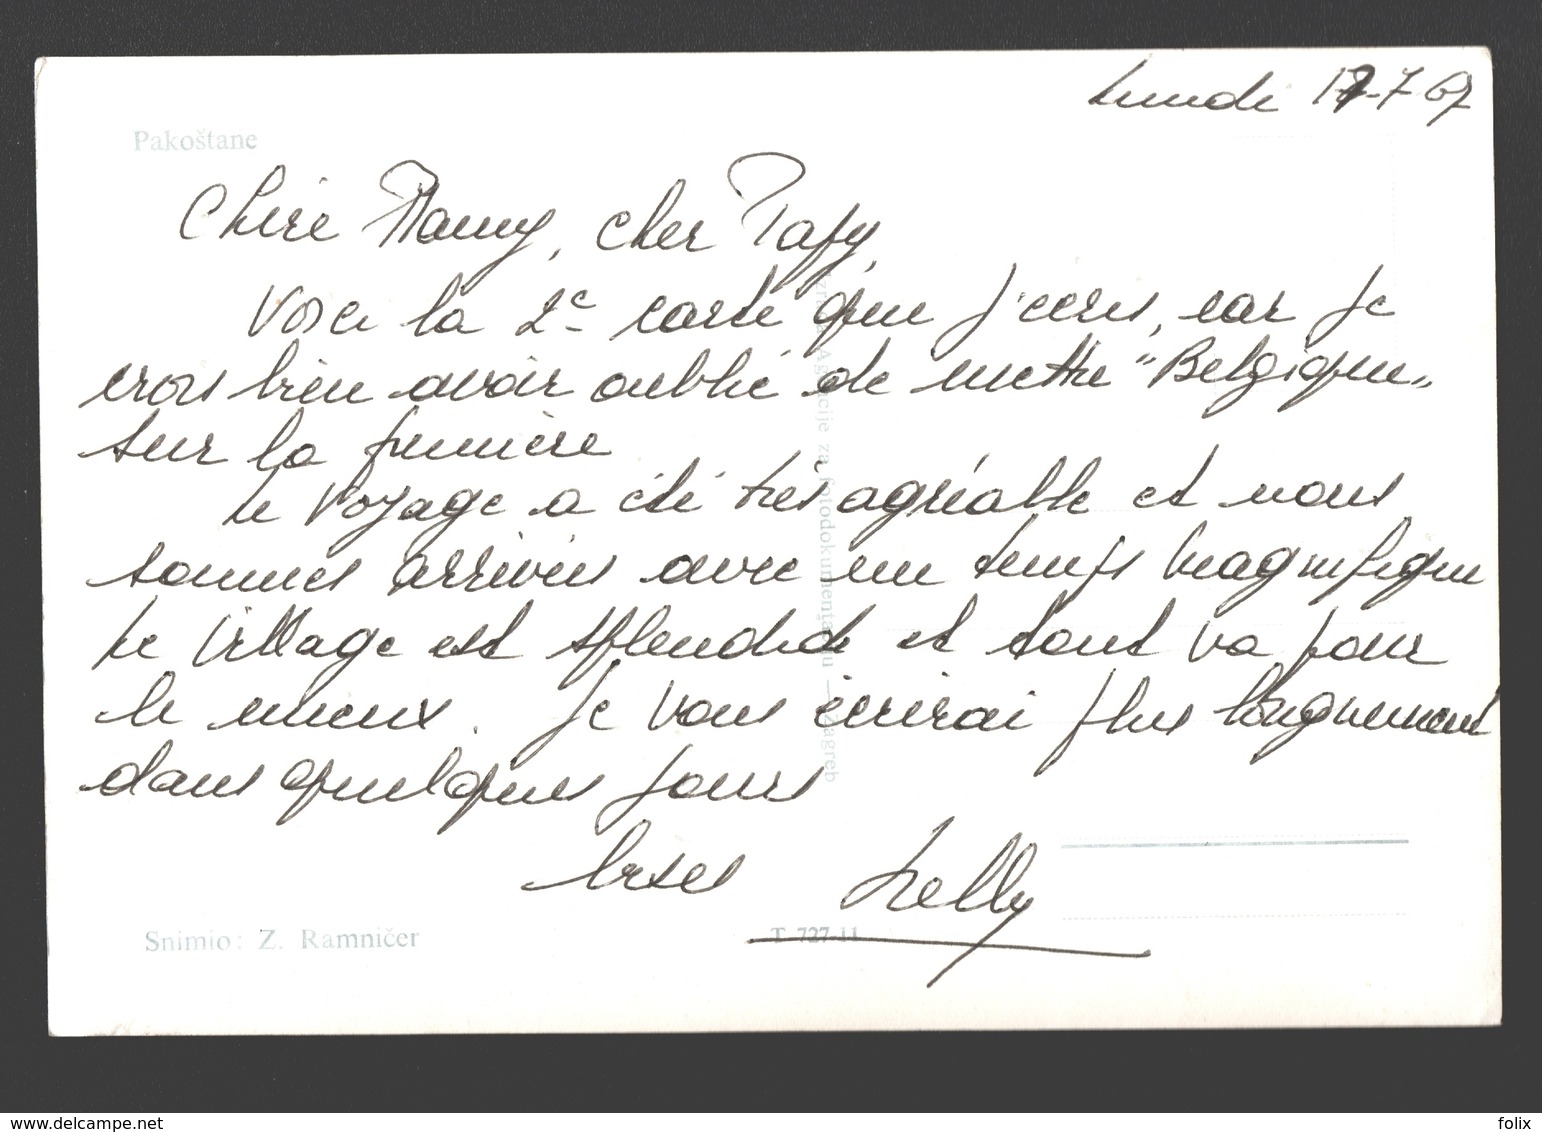 Lundi 17-7-67
Pakoštane
Chère Mamy, cher Papy,
Voici la 2e carte que j'écris, car je
crois bien avoir oublié de mettre "Belgique"
sur la première
Le voyage a été très agréable et nous
sommes arrivés avec un temps magnifique
Le village est splendide et tout va pour
le mieux. Je vous écrirai plus longuement
dans quelques jours
Bises Nelly
Izrada Agencije za fotodokumentaciju — Zagreb
Snimio: Z. Ramničer
T 727-11
www.delcampe.net
folix